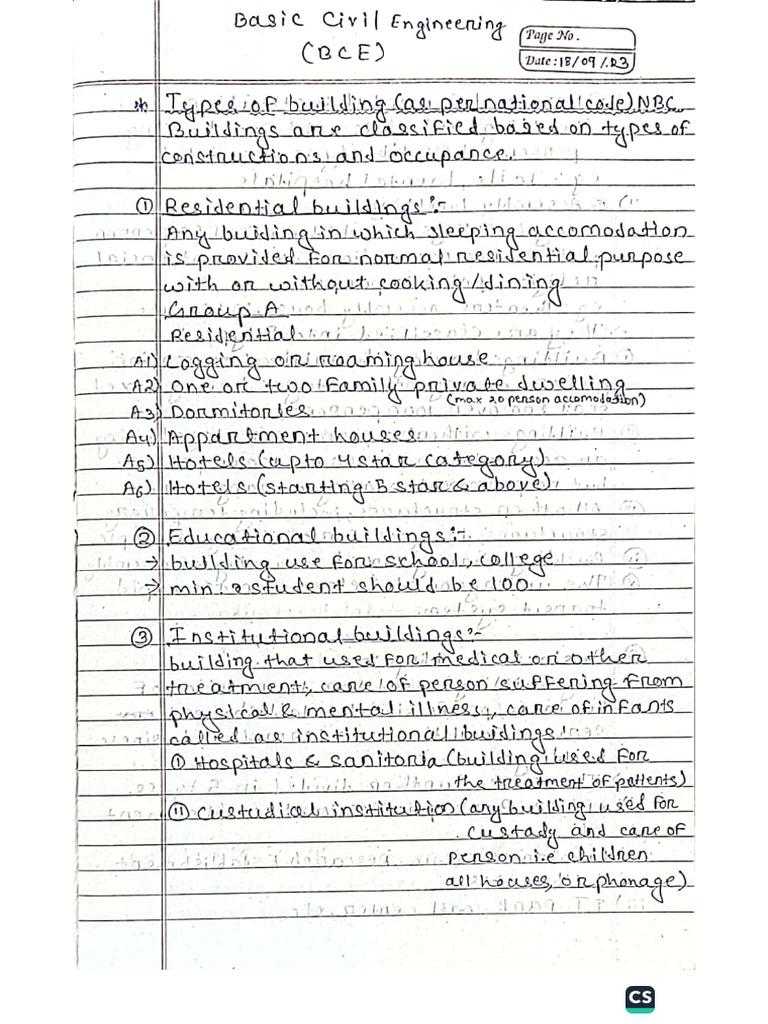 Basic Civil Engineering
(BCE)
Page No.
Date: 18/09/23
* Types of building (as per national code) NBC.
Buildings are classified based on types of
constructions and occupance.
① Residential buildings :-
Any buiding in which sleeping accomodation
is provided for normal residential purpose
with or without cooking/dining
Group A
Residential
A1) Logging or roaming house
A2) One or two Family private dwelling
(max 20 person accomodation)
A3) Dormitories
A4) Appartment houses
A5) Hotels (upto 4 star category)
A6) Hotels (starting 5 star & above)
② Educational buildings :-
→ building use for school, college
→ min student should be 100
③ Institutional buildings :-
building that used for medical or other
treatment, care of person suffering from
physical & mental illness, care of infants
called as institutional buidings
① Hospitals & sanitoria (building used for
the treatment of patients)
⑪ custudial institution (any building used for
custady and care of
person i.e children
all houses, orphonage)
CS